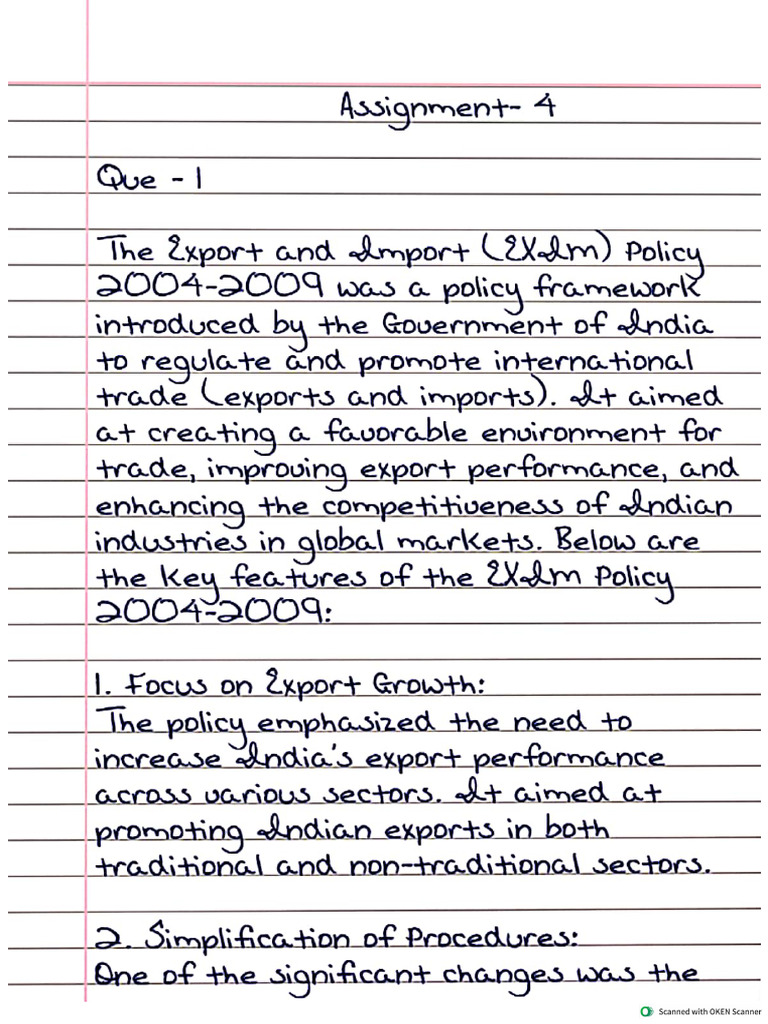 Assignment- 4
Que - 1
The Export and Import (EXIm) Policy
2004-2009 was a policy framework
introduced by the Government of India
to regulate and promote international
trade (exports and imports). It aimed
at creating a favorable environment for
trade, improving export performance, and
enhancing the competitiveness of Indian
industries in global markets. Below are
the key features of the EXIm Policy
2004-2009:
1. Focus on Export Growth:
The policy emphasized the need to
increase India's export performance
across various sectors. It aimed at
promoting Indian exports in both
traditional and non-traditional sectors.
2. Simplification of Procedures:
One of the significant changes was the
Scanned with OKEN Scanner